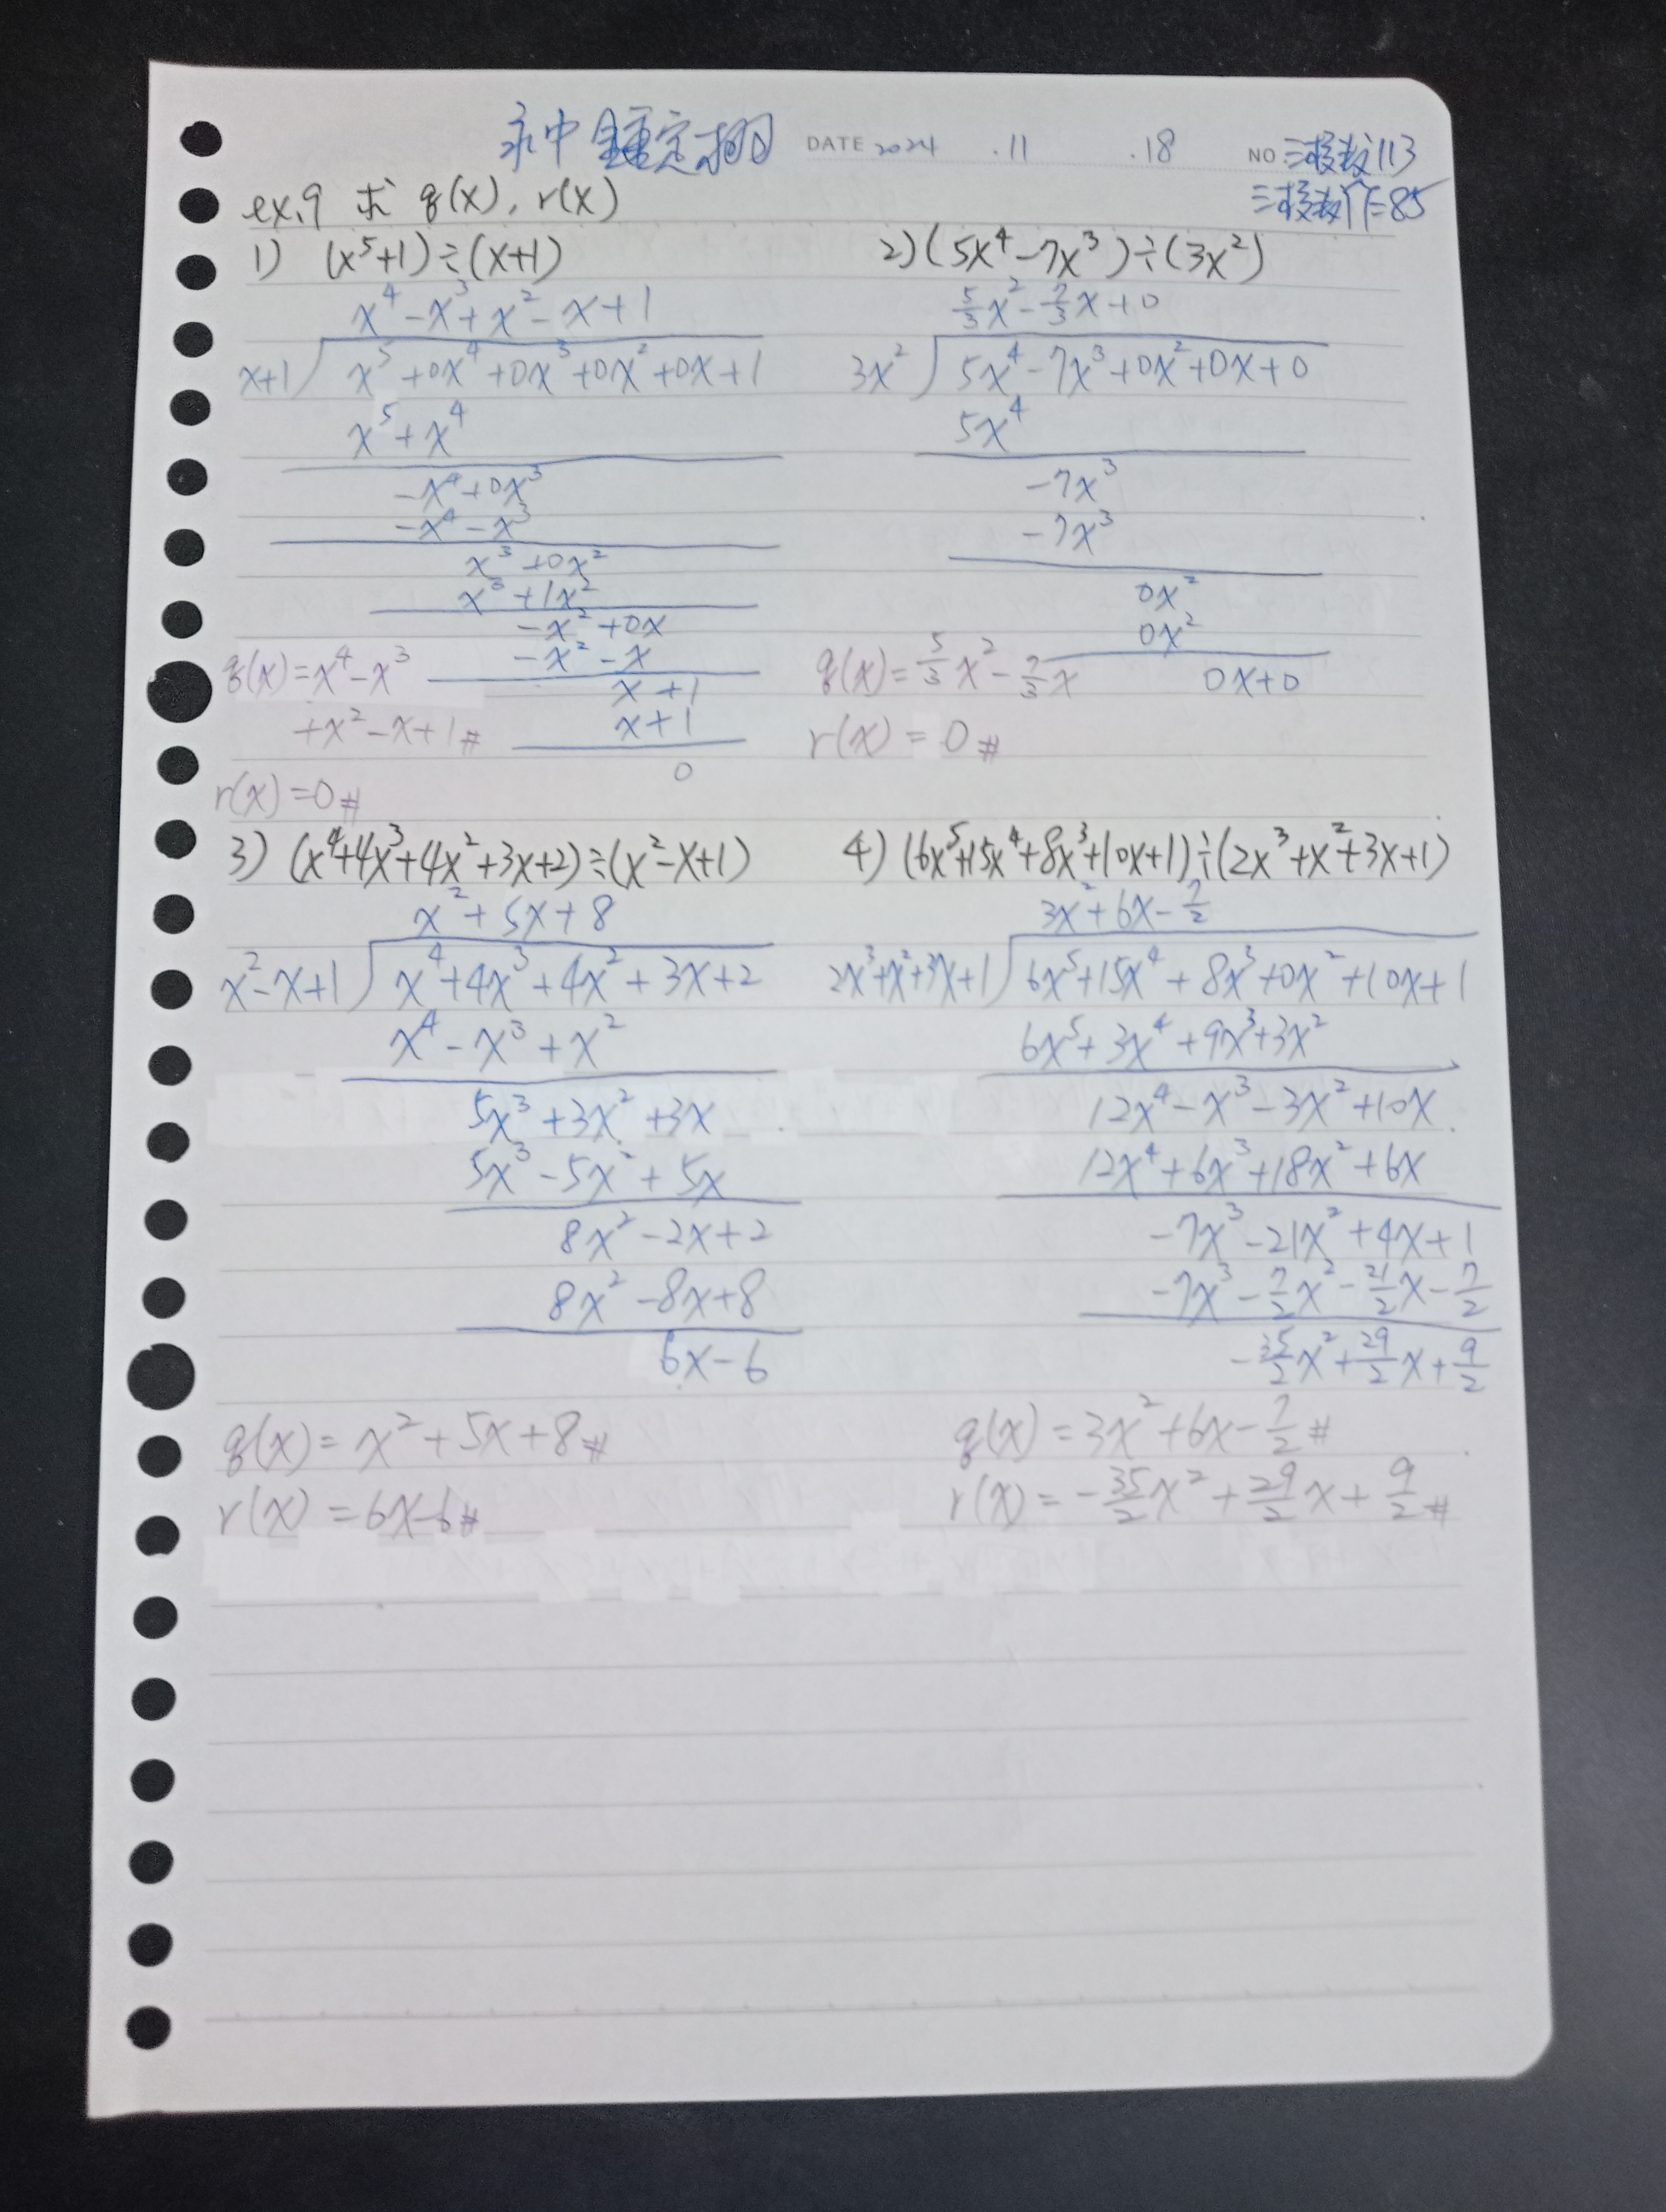 永中 鍾定翔 DATE 2024 .11 .18 NO 三技数113
三技数个=85
ex.9 求 q(x), r(x)
1) (x⁵+1)÷(x+1)
x⁴-x³+x²-x+1
x+1 ) x⁵+0x⁴+0x³+0x²+0x+1
x⁵+x⁴
-x⁴+0x³
-x⁴-x³
x³+0x²
x³+1x²
-x²+0x
-x²-x
x+1
x+1
0
q(x)=x⁴-x³
+x²-x+1#
r(x)=0#
2) (5x⁴-7x³)÷(3x²)
5/3x²-7/3x+0
3x² ) 5x⁴-7x³+0x²+0x+0
5x⁴
-7x³
-7x³
0x²
0x²
0x+0
q(x)=5/3x²-7/3x
r(x)=0#
3) (x⁴+4x³+4x²+3x+2)÷(x²-x+1)
x²+5x+8
x²-x+1 ) x⁴+4x³+4x²+3x+2
x⁴-x³+x²
5x³+3x²+3x
5x³-5x²+5x
8x²-2x+2
8x²-8x+8
6x-6
q(x)=x²+5x+8#
r(x)=6x-6#
4) (6x⁵+15x⁴+8x³+10x+1)÷(2x³+x²+3x+1)
3x²+6x-7/2
2x³+x²+3x+1 ) 6x⁵+15x⁴+8x³+0x²+10x+1
6x⁵+3x⁴+9x³+3x²
12x⁴-x³-3x²+10x
12x⁴+6x³+18x²+6x
-7x³-21x²+4x+1
-7x³-7/2x²-21/2x-7/2
-35/2x²+29/2x+9/2
q(x)=3x²+6x-7/2#
r(x)=-35/2x²+29/2x+9/2#